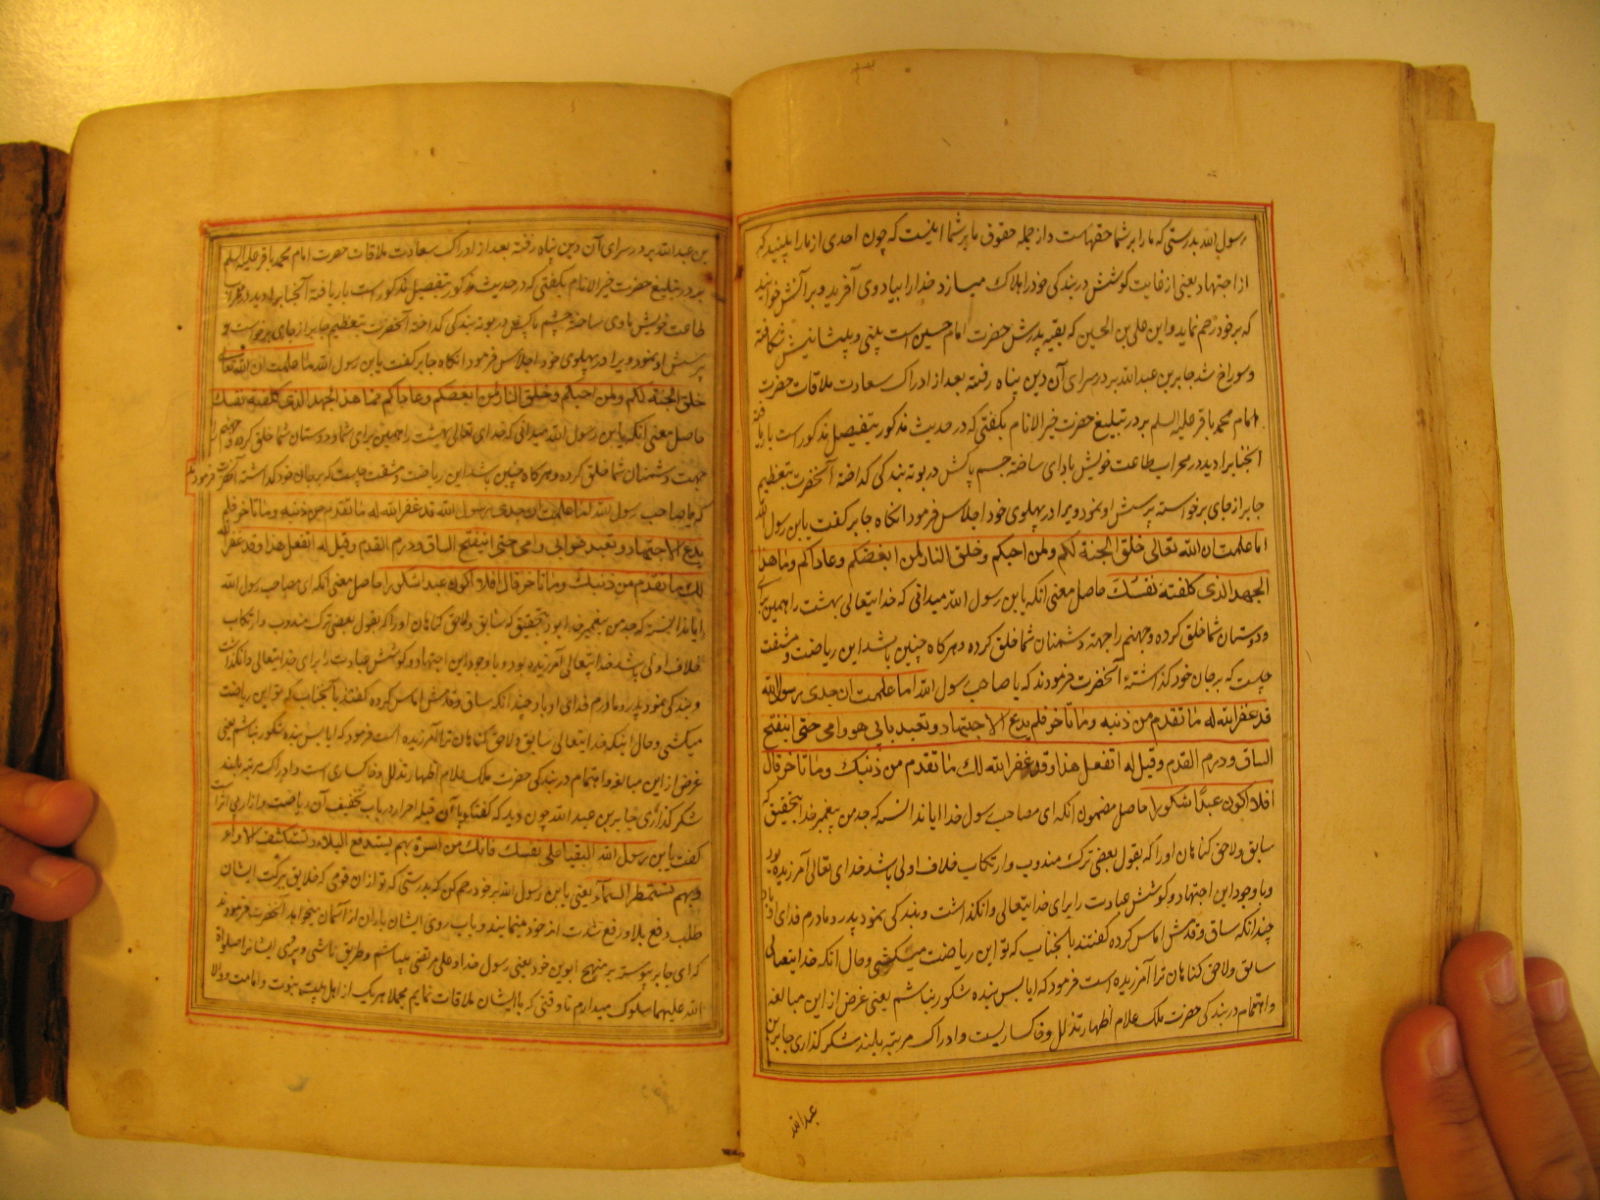 رسول الله بدرستی که ما را بر شما حقهاست و از جمله حقوق ما بر شما اینست که چون احدی از ما را ببینید که
از اجتهاد یعنی از غایت کوشش در بندکی خود را هلاک میسازد خدا را بیاد وی آرید و بر آتش خوانید
که بر خود رحم نماید و این علی بن الحسین که بقیه پدرش حضرت امام حسین است بینی و پیشانیش شکافته
و سوراخ شد جابر بن عبد الله بر در سرای آن دین پناه رفته بعد از ادراک سعادت ملاقات حضرت
امام محمد باقر علیه السلم بر در تبلیغ حضرت خیر الانام بکفتی که در حدیث مذکور بتفصیل مذکور است بار یافته
آنجنابرا دید در محراب طاعت خویش با دای ساخته جسم پاکش در بوته بندکی کداخته آنحضرت بتعظیم
جابر از جای برخواسته پرسش او نمود و ویرا در پهلوی خود اجلاس فرمود انکاه جابر کفت یا بن رسول الله
اما علمت ان الله تعالی خلق الجنة لکم ولمن احبکم وخلق النار لمن ابغضکم وعاداکم وما هذا
الجهد الذی کلفته نفسک حاصل معنی انکه یا بن رسول الله میدانی که خدایتعالی بهشت را همین برای
و دوستان شما خلق کرده و جهنم را جهته دشمنان شما خلق کرده و هر کاه چنین باشد این ریاضت و مشقت
چیست که بر جان خود کذاشتۀ آنحضرت فرمودند که یا صاحب رسول الله اما علمت ان جدی رسول الله
قد غفر الله له ما تقدم من ذنبه وما تاخر فلم یدع الاجتهاد وتعبد بابی هو وامی حتی انتفخ
الساق وورم القدم وقیل له اتفعل هذا وقد غفر الله لک ما تقدم من ذنبک وما تاخر قال
افلا اکون عبدا شکورا حاصل مضمون انکه ای مصاحب رسول خدا ایا ندانسته که جد من پیغمبر خدا بتحقیق که
سابق ولاحق کناهان او را که بقول بعضی ترک مندوب و ارتکاب خلاف اولی باشد خدای تعالی آمرزیده بود
و با وجود این اجتهاد و کوشش عبادت را برای خدایتعالی وانکذاشت و بندکی نمود پدر و مادرم فدای او باد
چندانکه ساق و قدمش اماس کرده کفتند بآنجناب که تو این ریاضت میکشی و حال انکه خدایتعالی
سابق ولاحق کناهان ترا آمرزیده است فرمود که ایا پس بنده شکور نباشم یعنی غرض از این مبالغه
و اهتمام در بندکی حضرت ملک علام اظهار تذلل و خاکساریست و ادراک مرتبه بلند شکر کذاری جابر بن
عبدالله
بن عبد الله بر در سرای آن دین پناه رفته بعد از ادراک سعادت ملاقات حضرت امام محمد باقر علیه السلم
بر در تبلیغ حضرت خیر الانام بکفتی که در حدیث مذکور بتفصیل مذکور است بار یافته آنجنابرا دید در محراب
طاعت خویش با دای ساخته جسم پاکش در بوته بندکی کداخته آنحضرت بتعظیم جابر از جای برخواسته
پرسش او نمود و ویرا در پهلوی خود اجلاس فرمود انکاه جابر کفت یا بن رسول الله ما علمت ان الله تعالی
خلق الجنة لکم ولمن احبکم وخلق النار لمن ابغضکم وعاداکم فما هذا الجهد الذی کلفته نفسک
حاصل معنی انکه یا بن رسول الله میدانی که خدای تعالی بهشت را همین برای شما و دوستان شما خلق کرده و جهنم را
جهت دشمنان شما خلق کرده و هر کاه چنین باشد این ریاضت و مشقت چیست که بر جان خود کذاشتۀ آنحضرت فرمود
که یا صاحب رسول الله اما علمت ان جدی رسول الله قد غفر الله له ما تقدم من ذنبه وما تاخر فلم
یدع الاجتهاد وتعبد هو بابی وامی حتی انتفخ الساق وورم القدم وقیل له اتفعل هذا وقد غفر الله
لک ما تقدم من ذنبک وما تاخر قال افلا اکون عبدا شکورا حاصل معنی انکه ای مصاحب رسول الله
ایا ندانسته که جد من پیغمبر خدا بود بتحقیق که سابق ولاحق کناهان او را که بقول بعضی ترک مندوب و ارتکاب
خلاف اولی باشد خدایتعالی آمرزیده بود و با وجود این اجتهاد و کوشش عبادت را برای خدایتعالی وانکذاشت
و بندکی نمود پدر و مادرم فدای او باد چندانکه ساق و قدمش اماس کرده کفتند بآنجناب که تو این ریاضت
میکشی و حال اینکه خدایتعالی سابق ولاحق کناهان ترا آمرزیده است فرمود که ایا پس بنده شکور نباشم یعنی
غرض از این مبالغه و اهتمام در بندکی حضرت ملک علام اظهار تذلل و خاکساری است و ادراک مرتبه بلند
شکر کذاری جابر بن عبد الله چون دید که کفتکو با آن قبله احرار در باب تخفیف آن ریاضت و ازار بی اثر است
کفت یا بن رسول الله البقیا علی نفسک فانک من اسرة بهم یستدفع البلاء وتستکشف الاواء
وبهم تستمطر السماء یعنی یا بن رسول الله بر خود رحم کن که بدرستی که تو از ان قومی که خلایق ببرکت ایشان
طلب دفع بلا و رفع شدت از خود مینمایند و باب روی ایشان باران از آسمان میخواهند آنحضرت فرمود
که ای جابر پیوسته بر منهج ابوین خود یعنی رسول خدا و علی مرتضی میباشم و طریق تاسی و پیروی ایشانرا صلوات
الله علیهما سلوک میدارم تا وقتی که با ایشان ملاقات نمایم مجملا هر یک از اهل بیت نبوت و امامت و ولا